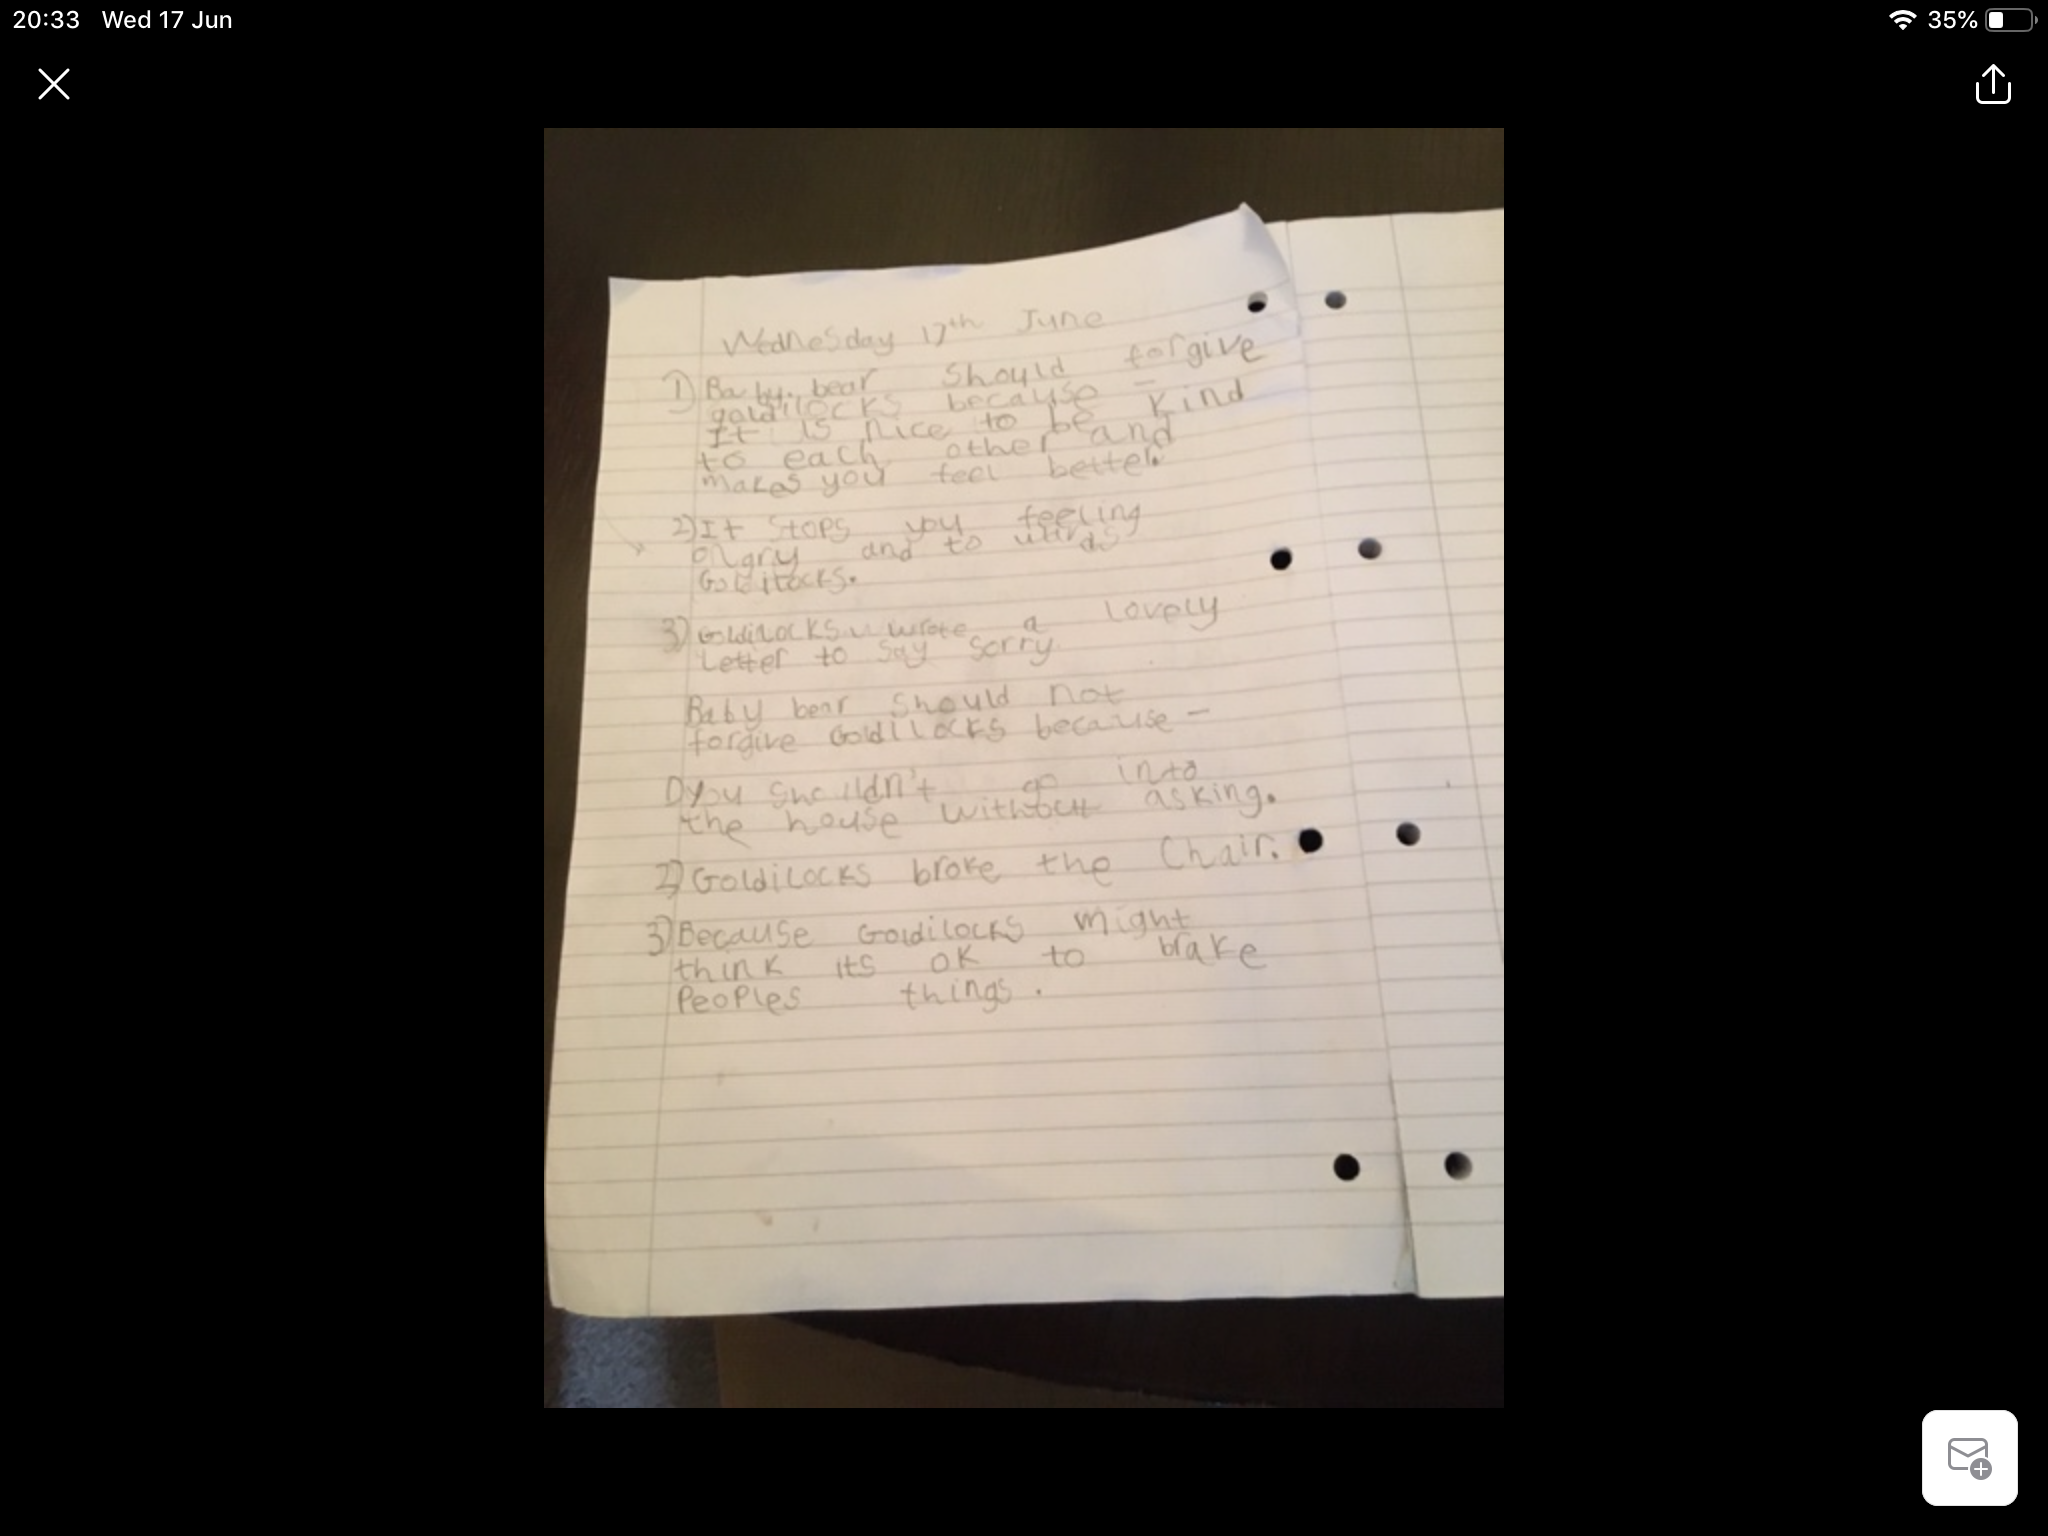 20:33 Wed 17 Jun
35%
Wednesday 17th June
1) Baby bear should forgive
goldilocks because -
It is nice to be kind
to each other and
makes you feel better.
2) It stops you feeling
angry and to
Goldilocks.
3) Goldilocks wrote a lovely
Letter to say sorry
Baby bear should not
forgive Goldilocks because -
1) you shouldn't go into
the house without asking.
2) Goldilocks broke the Chair.
3) Because Goldilocks might
think its ok to brake
Peoples things.